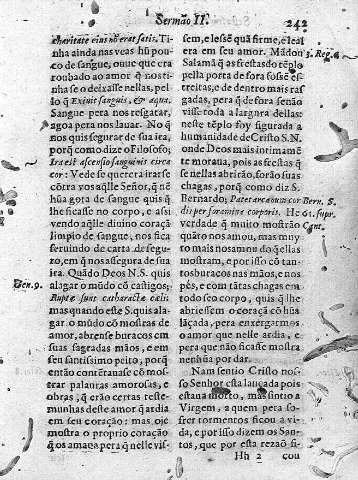 Sermão II.
242
charitate eius nõ erat satis. Ti-
nha ainda nas veas hũ pou-
co de sangue, ouue que era
roubado ao amor q̃ nos ti-
nha se o deixasse nellas, pel-
lo q̃ Exiuit sanguis, & aqua.
Sangue pera nos resgatar,
agoa pera nos lauar. No q̃
nos quis segurar de sua ira,
porq̃ como dize o Filosofo;
Ira est ascensio sanguinis circa
cor: Vede se querera irarse
cõtra vos aq̃lle Señor, q̃ nẽ
hũa gota de sangue quis q̃
lhe ficasse no corpo, e assi
vendo aq̃lle diuino coraçã
limpio de sangue, nos fica
seruindo de carta de segu-
ro, em q̃ nos assegura de sua
ira. Quãdo Deos N.S. quis
Gen. 9.
alagar o mũdo cõ castigos,
Ruptæ sunt cataractæ cæli.
mas quando este S. quis ala-
gar o mũdo cõ mostras de
amor, abrense buracos em
suas sagradas mãos, e em
seu santissimo peito, porq̃
então contẽtauase cõ mos-
trar palauras amorosas, e
obras, q̃ erão certas teste-
munhas deste amor q̃ ardia
em seu coração: mas oje
mostra o proprio coração
q̃ os amaua pera q̃ nelle vis-
sem, e lessẽ quã firme, e leal
era em seu amor. Mãdou
3. Reg. 6.
Salamã q̃ as frestas do tẽplo
pella porta de fora fossẽ es-
treitas, e de dentro mais ras-
gadas, pera q̃ de fora senão
visse toda a largura dellas:
neste tẽplo foy figurada a
humanidade de Cristo S.N.
onde Deos mais intimamẽ
te moraua, pois as frestas q̃
se nellas abrirão, forão suas
chagas, porq̃ como diz S.
Bernardo; Pater arcanum cor
Bern. S.
dis per foramina corporis. He
61. supr.
verdade q̃ muito mostrão
Cant.
quãto nos amou, mas muy-
to mais nos amou do q̃ ellas
mostram, e por isso cõ tan-
tos buracos nas mãos, e nos
pés, e com tãtas chagas em
todo seu corpo, quis q̃ lhe
abrissem o coraçã cõ hũa
lãçada, pera enxergarmos
o amor que nelle ardia, e
pera que não ficasse mostra
nenhũa por dar.
Nam sentio Cristo nos-
so Senhor esta lançada pois
estaua morto, mas sintio a
Virgem, a quem pera so-
frer tormentos ficou a vi-
da, e por isso dizem os San-
tos, que por esta rezaõ fi-
Hh 2
cou